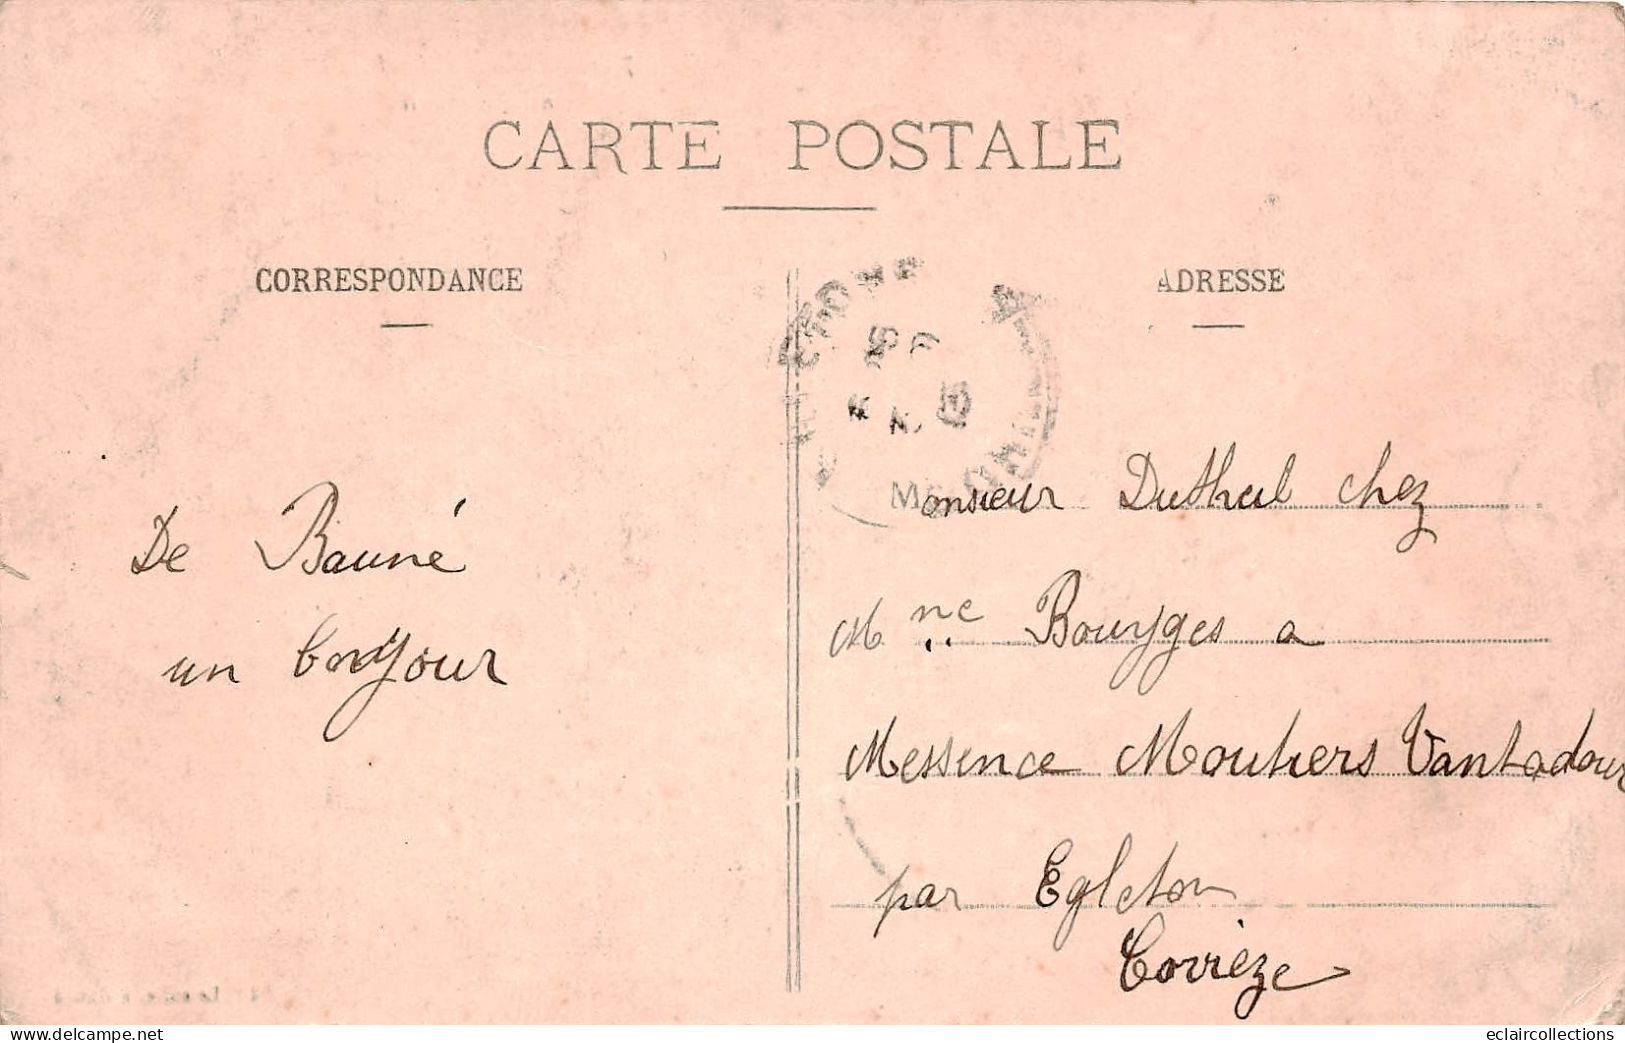 CARTE POSTALE
CORRESPONDANCE
ADRESSE
De Bauné
un bonjour
Monsieur Dutheil chez
Mme Bouyges a
Messence Moutiers Vantadour
par Egleton
Corrèze
eclaircollections